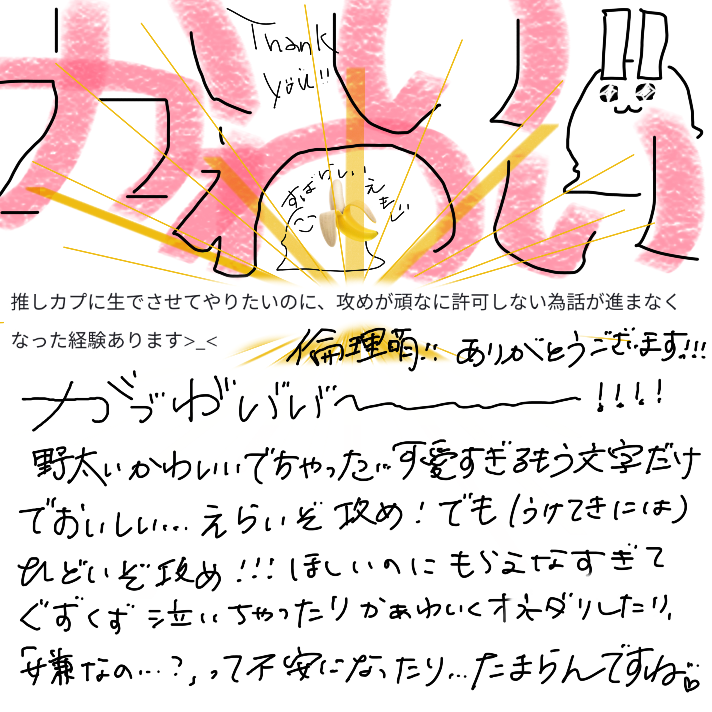 かわいい
Thank
you!!
すばらしいえもじ
推しカプに生でさせてやりたいのに、攻めが頑なに許可しない為話が進まなく
なった経験あります>_<
倫理萌!! ありがとうございます!!!
がづがいいい〜!!!!
野太いかわいいでちゃった…可愛すぎるもう文字だけ
でおいしい…えらいぞ攻め!でも(うけてきには)
ひどいぞ攻め!!!ほしいのにもらえなすぎて
ぐずぐず泣いちゃったりかぁわいくオネダリしたり、
「嫌なの…?」って不安になったり…たまらんですね…♡